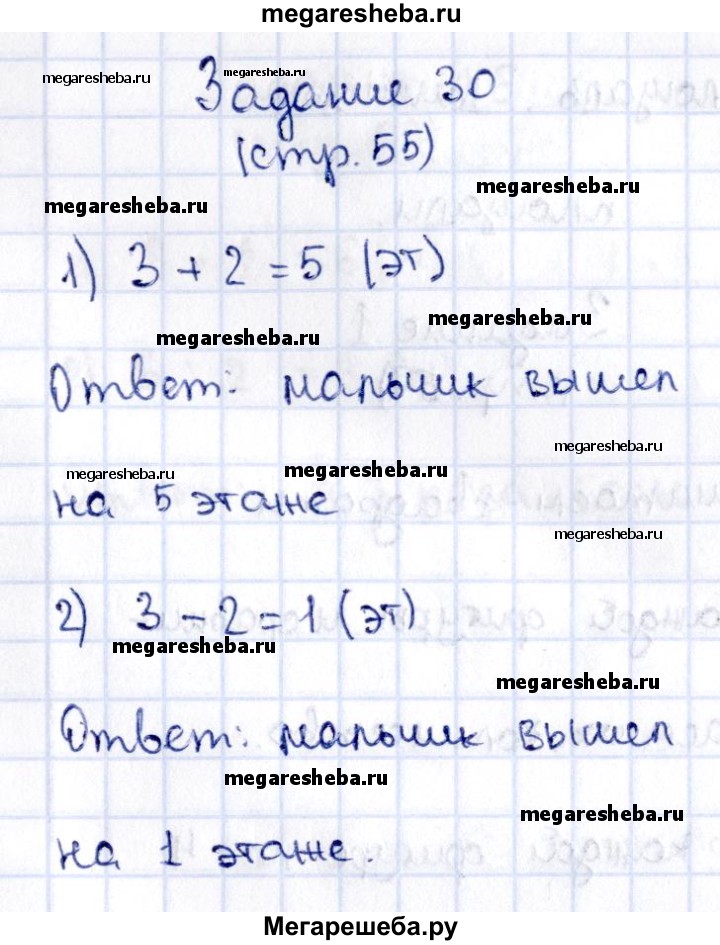 megaresheba.ru
megaresheba.ru
megaresheba.ru
Задание 30
(стр. 55)
megaresheba.ru
megaresheba.ru
1) 3 + 2 = 5 (эт)
megaresheba.ru
megaresheba.ru
Ответ: мальчик вышел
megaresheba.ru
megaresheba.ru
megaresheba.ru
на 5 этаже
megaresheba.ru
2) 3 - 2 = 1 (эт)
megaresheba.ru
megaresheba.ru
Ответ: мальчик вышел
megaresheba.ru
megaresheba.ru
на 1 этаже.
Мегарешеба.ру